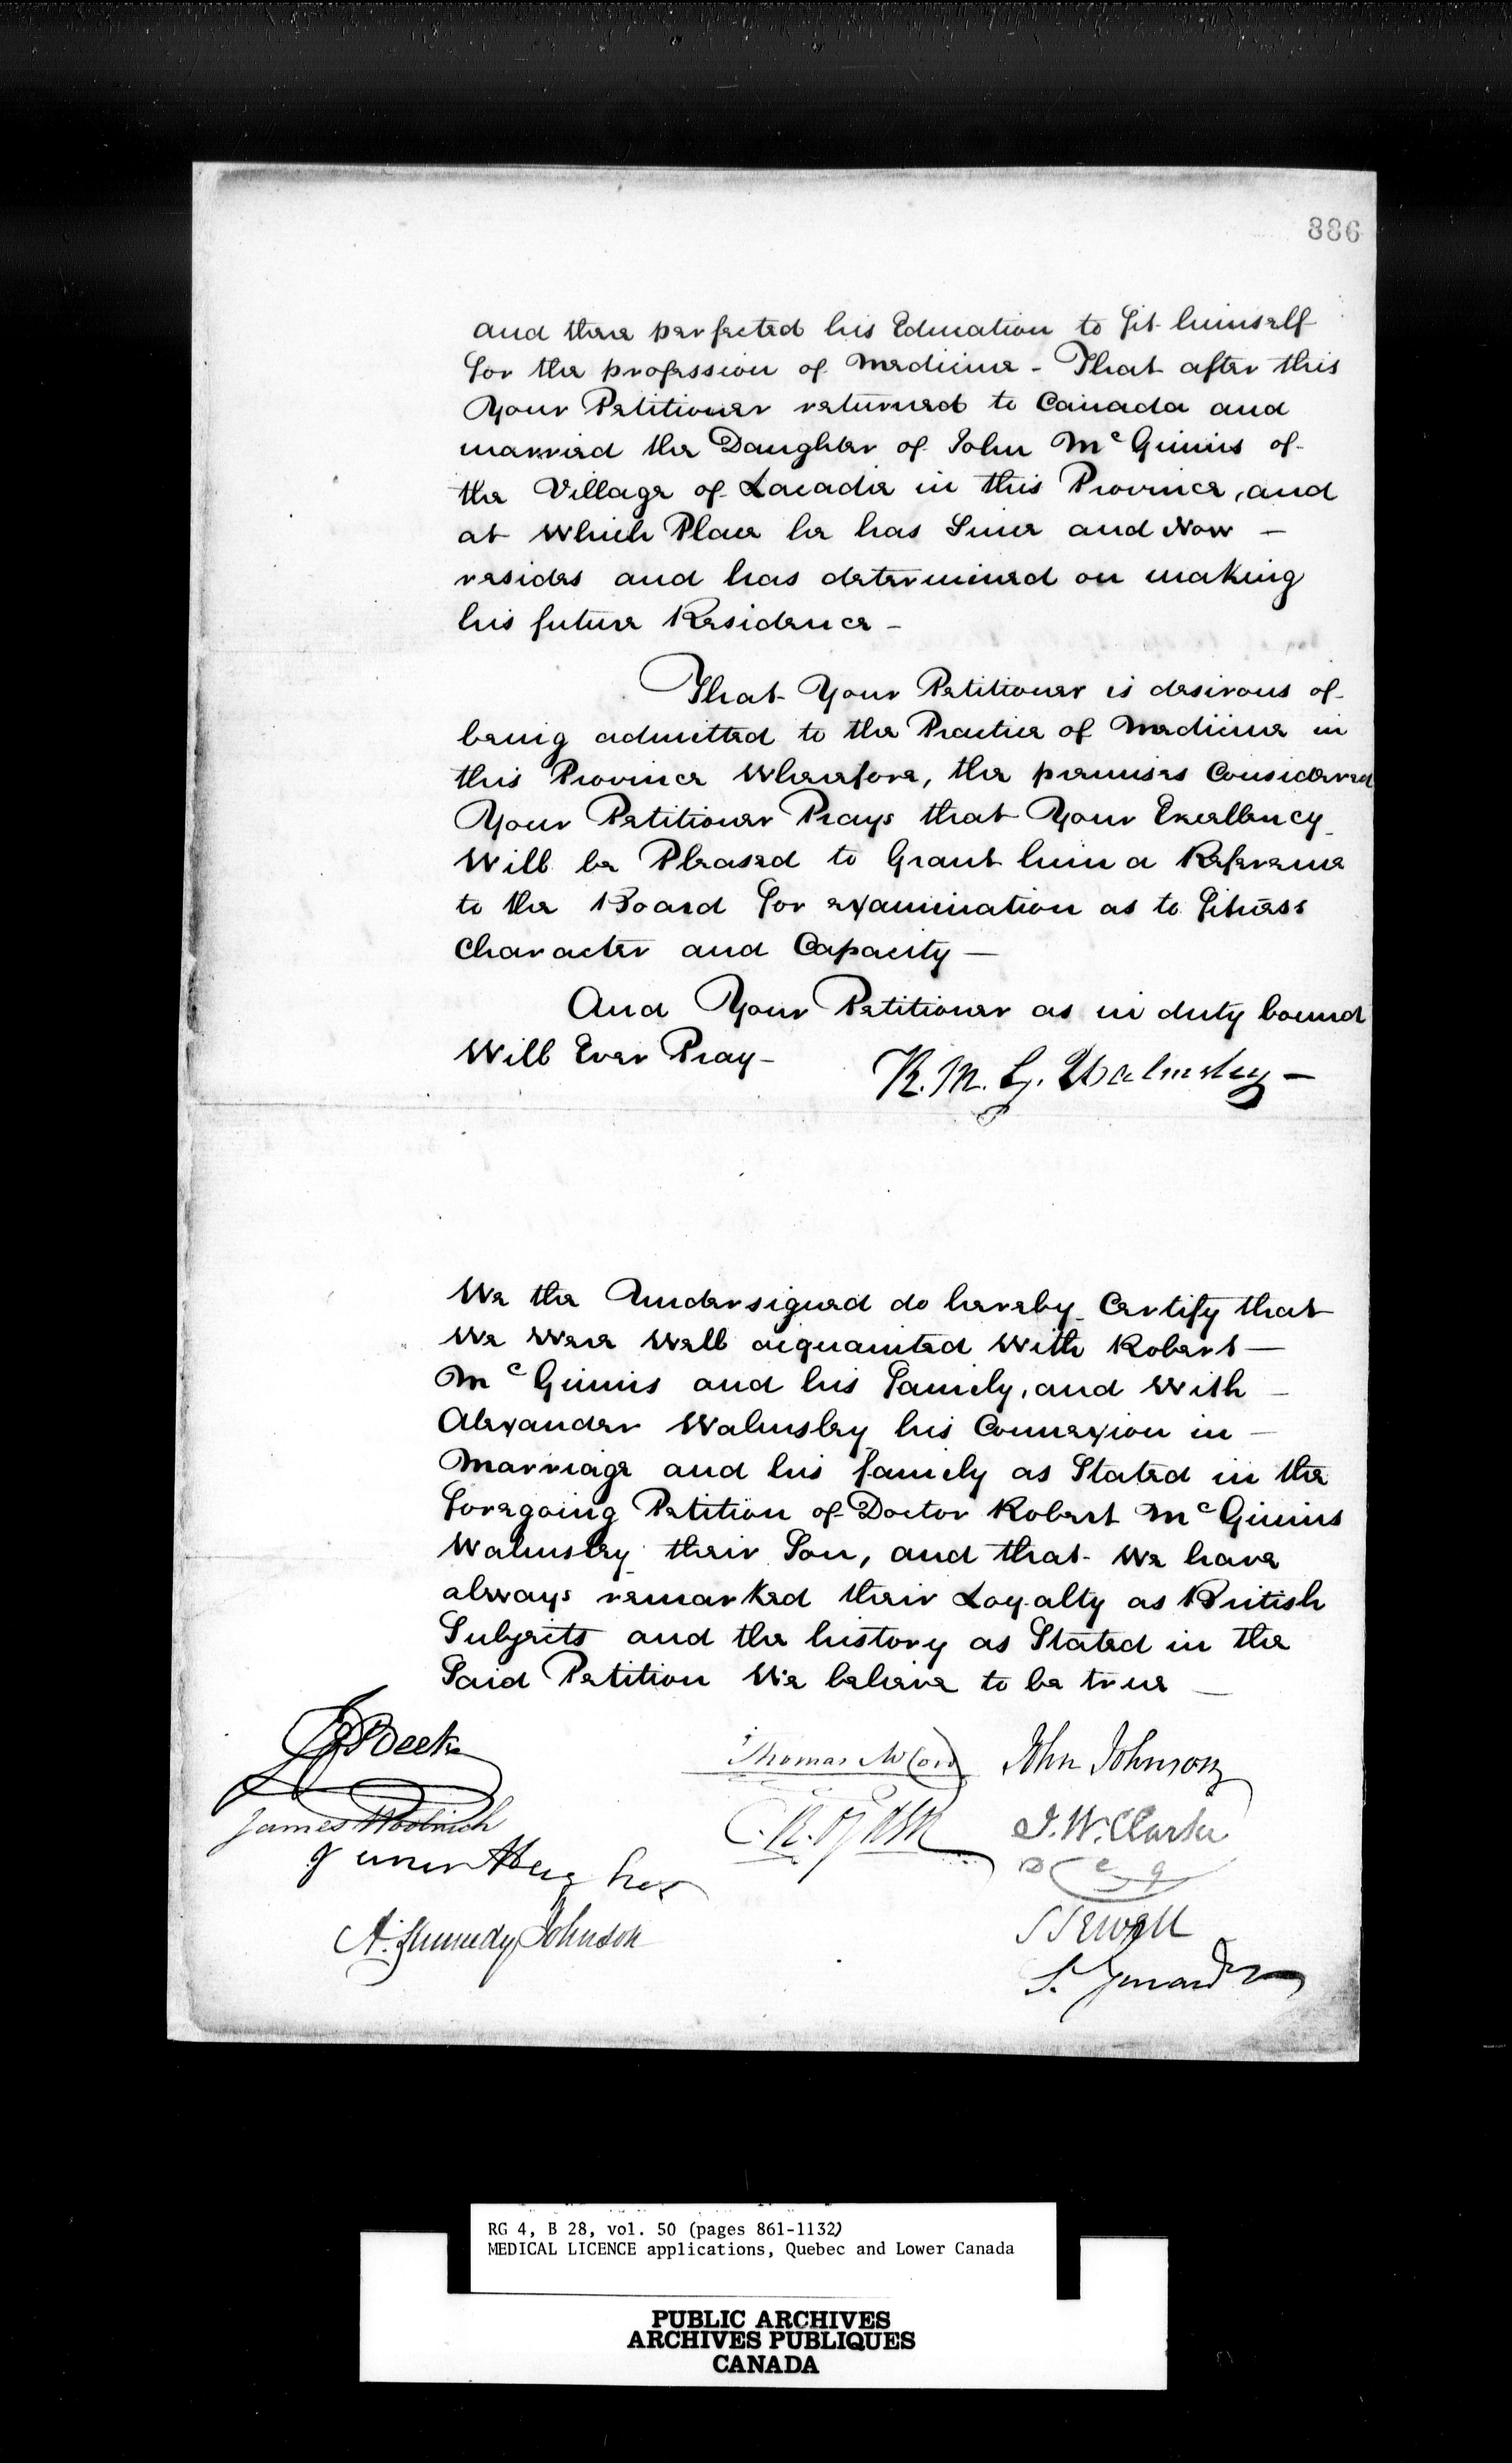 886
and there perfected his Education to fit himself
for the profession of Medicine - That after this
Your Petitioner returned to Canada and
married the Daughter of John McGinnis of
the Village of Lacadie in this Province, and
at Which Place he has Since and Now -
resides and has determined on making
his future Residence -
That Your Petitioner is desirous of
being admitted to the Practice of Medicine in
this Province Wherefore, the premises Considered
Your Petitioner Prays that Your Excellency
Will be Pleased to Grant him a Reference
to the Board for examination as to fitness
Character and Capacity -
And Your Petitioner as in duty bound
Will Ever Pray -
R. M. G. Walmsley -
We the Undersigned do hereby Certify that
We Were Well acquainted With Robert -
McGinnis and his Family, and With -
Alexander Walmsley his Connexion in -
Marriage and his family as Stated in the
foregoing Petition of Doctor Robert McGinnis
Walmsley their Son, and that We have
always remarked their Loyalty as British
Subjects and the history as Stated in the
Said Petition We believe to be true -
Thomas McCord
John Johnson
James Woolrich
C. R. Ogden
J. W. Clarke
A. Kennedy Johnson
S Sewell
RG 4, B 28, vol. 50 (pages 861-1132)
MEDICAL LICENCE applications, Quebec and Lower Canada
PUBLIC ARCHIVES
ARCHIVES PUBLIQUES
CANADA